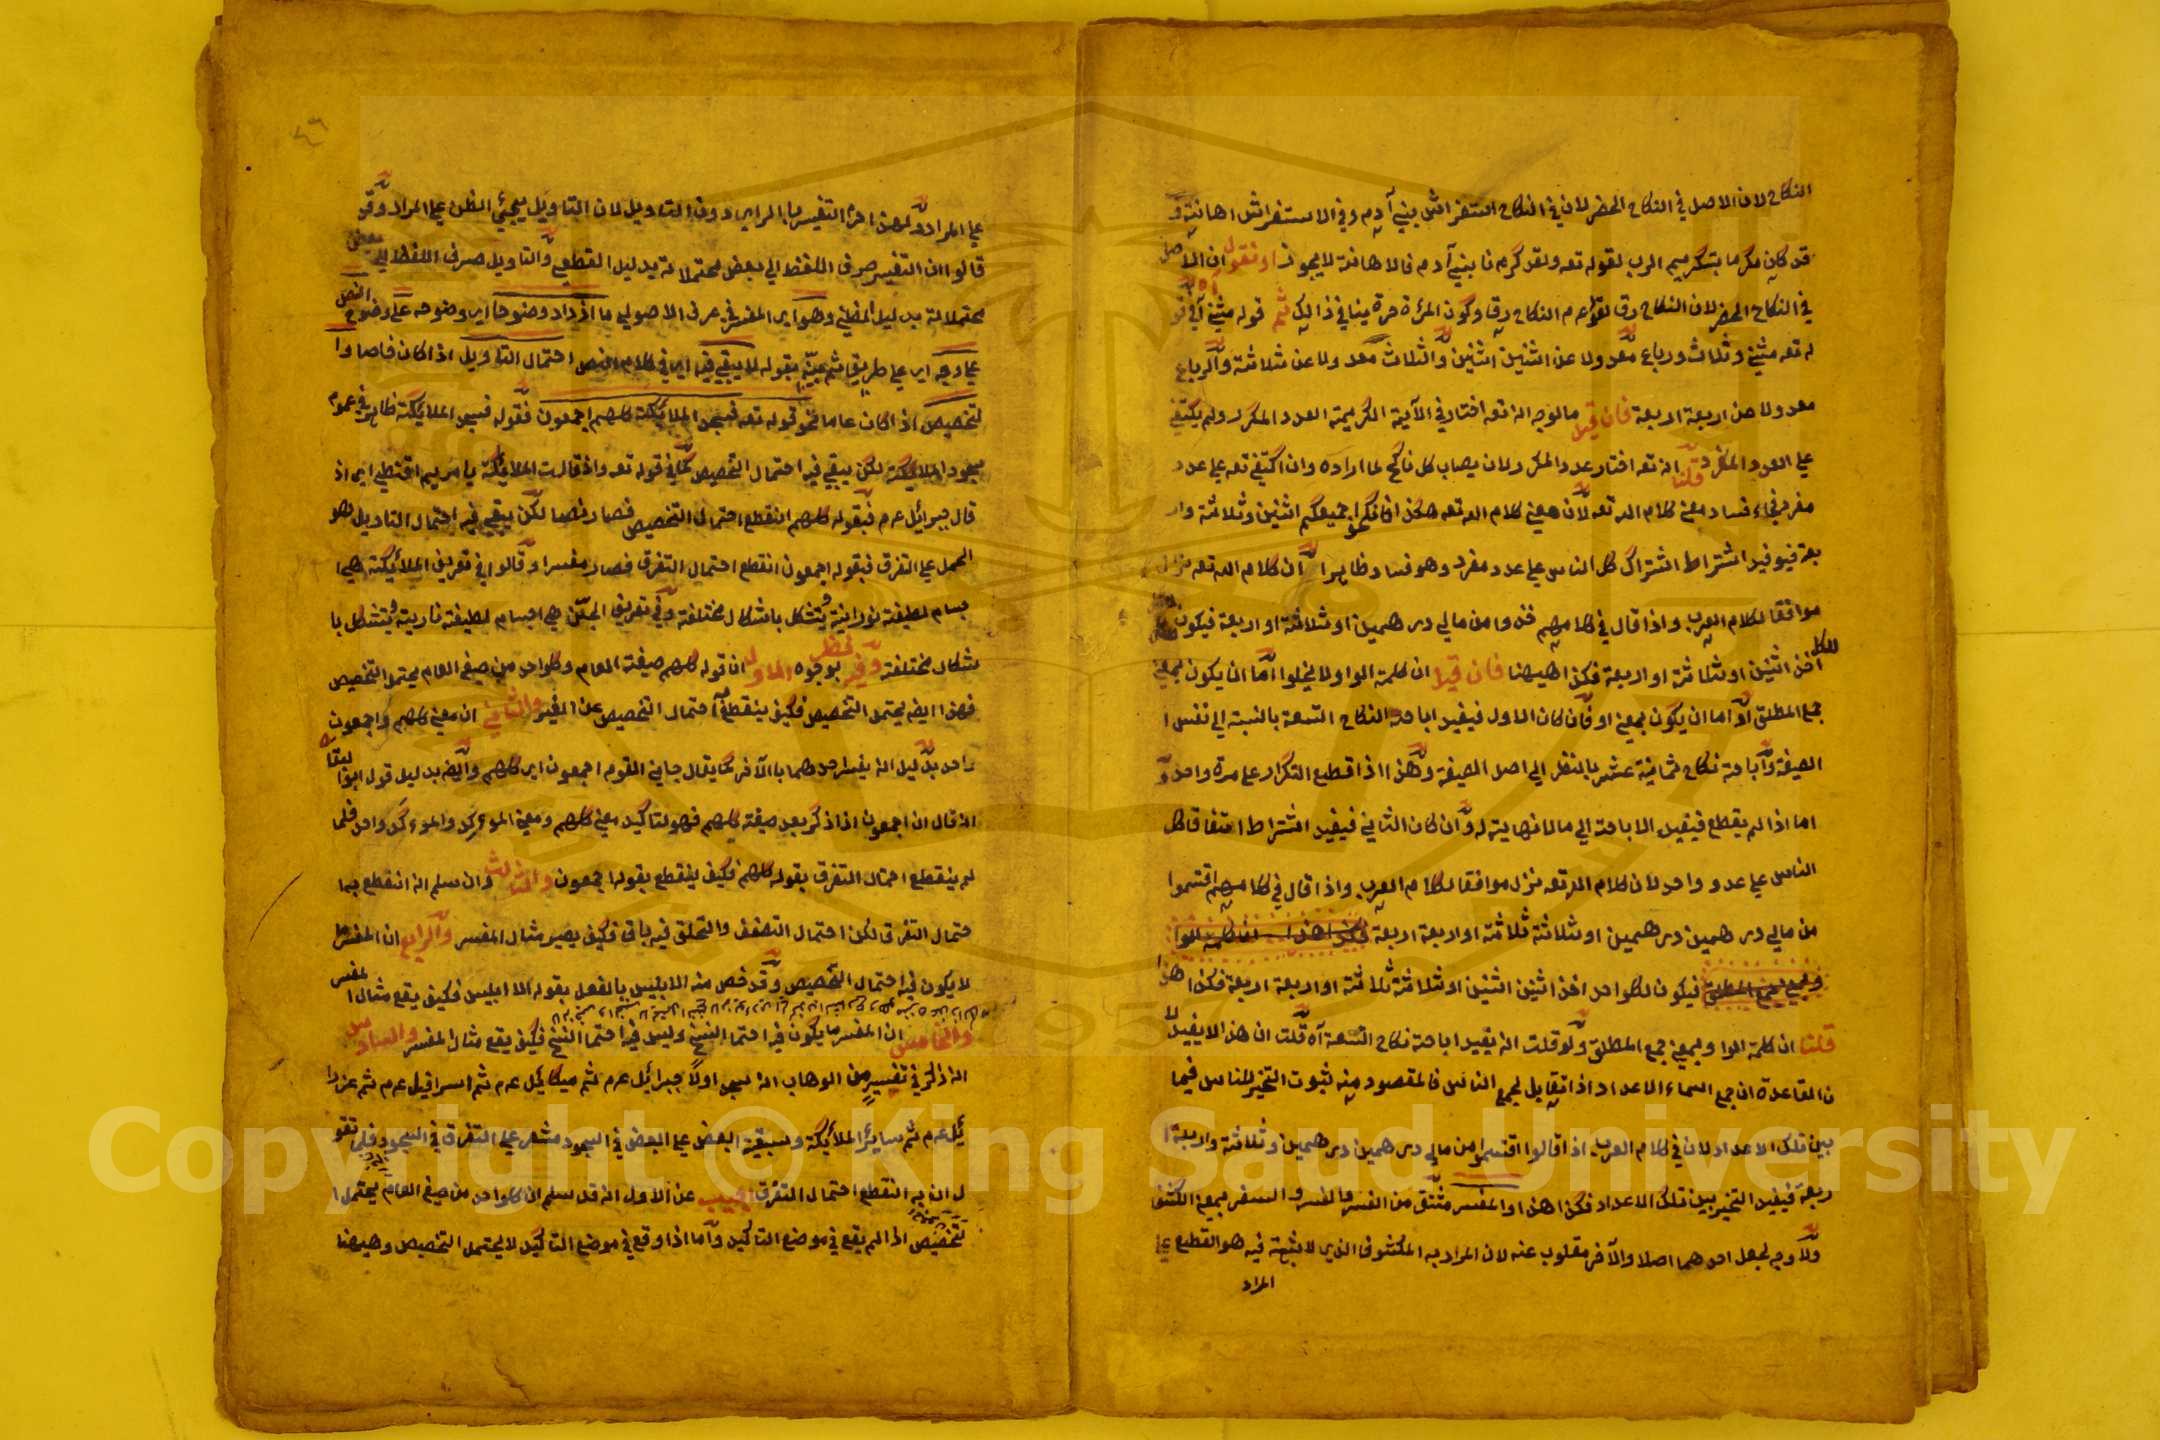 النكاح لان الاصل في النكاح الحضر لان في النكاح استفراش بنى آدم وفي الاستفراش اهانته و
قد كان مكرما بتكريم الرب لقوله تعه ولقد كرمنا بني آدم فالاهانة لا يجوز او نقول ان الاصل
في النكاح الحضر لان النكاح رق لقوله عم النكاح رق وكون المرءة حرة ينافي ذالك ثم قوله مثنى آه في قو
له تعه مثنى وثلاث ورباع معدولا عن اثنين اثنين والثلاث معدولا عن ثلاثة والرباع
معدولا عن اربعة اربعة فان قيل ما لوجه انه تعه اختار في الآية الكريمة العدد المكرر ولم يكتفى
على العدد المفرد قلنا انه تعه اختار عدد المكرر لان يصاب كل ناكح لما اراده وان اكتفى تعه على عدد
مفرد فجاء فساد معنى كلام الله تعه لان معنى كلام الله تعه هكذا فانكحوا جميعكم اثنين وثلاثة وار
بعة فيوفيد اشتراط اشتراك كل الناس على عدد مفرد وهو فساد ظاهرا لان كلام الله تعه نزل
موافقا لكلام العرب واذا قال في كلامهم خذوا من مالي درهمين او ثلاثة او اربعة فيكون
للكل
اخذ اثنين او ثلاثة او اربعة فكذا هيهنا فان قيل ان كلمة الواو لا يخلوا اما ان يكون بمعنى
جمع المطلق او اما ان يكون بمعنى او فان كان الاول فيفيد اباحة النكاح التسعة بالنسبة الى نفس ا
لصيغة واباحة نكاح ثمانية عشر بالنظر الى اصل الصيغة وهذا اذا قطع التكرار على مرة واحد و
اما اذا لم يقطع فيفيد الاباحة الى مالا نهاية له وان كان الثاني فيفيد اشتراط اتفاق كل
الناس على عدد واحد لان كلام الله تعه نزل موافقا لكلام العرب واذا قال في كلامهم اقتسموا
من مالي درهمين درهمين او ثلاثة ثلاثة او اربعة اربعة فكذا هذا ان كلمة الواو
وبمعنى جمع المطلق فيكون لكل واحد اخذ اثنين اثنين او ثلاثة ثلاثة او اربعة اربعة فكذا هذا
قلنا ان كلمة الواو بمعنى جمع المطلق ولو قلت انه يفيد اباحة نكاح التسعة آه قلت ان هذا لا يفيد لا
ن القاعدة ان جمع اسماء الاعداد اذا تقابل لجمع الناس فالمقصود منه ثبوت التخير للناس فيما
بين تلك الاعداد لان في كلام العرب اذا قالوا اقتسموا من مالي درهمين درهمين وثلاثة واربعة ا
ربعة فيفيد التخير بين تلك الاعداد فكذا هذا والمفسر مشتق من الفسر والسفر بمعنى الكشف
ولا وجه لجعل احدهما اصلا والآخر مقلوب عنه لان المراد به المكشوف الذي لا شبهة فيه هو القطع على
المراد
على المراد ولهذا احرم التفسير بالراي دون التاويل لان التاويل يجئ الظن على المراد وقد
قالوا ان التفسير صرف اللفظ الى بعض محتملاته بدليل القطعي والتاويل صرف اللفظ الى بعض
محتملاته بدليل الظني وهو اي المفسر في عرف الاصولي ما ازداد وضوحا اي وضوحه على وضوح النص
على وجه اي على طريق ثم بينه بقوله لا يبقى فيه اي في كلام النص احتمال التاويل اذا كان خاصا وا
لتخصيص اذا كان عاما نحو قوله تعه فسجد الملائكة كلهم اجمعون فقوله فسجد الملائكة ظاهر في عموم
سجود الملائكة لكن يبقى فيه احتمال التخصيص كما في قوله تعه واذ قالت الملائكة يا مريم اقنطي اي اذ
قال جبرائل عم فبقوله كلهم انقطع احتمال التخصيص فصار نصا لكن يبقى فيه احتمال التاويل وهو
الحمل على التفرق فبقوله اجمعون انقطع احتمال التفرق فصار مفسرا وقالوا في تعريف الملائكة هي ا
جسام لطيفة نورانية وتتشكل باشكال مختلفة وفي تعريف الجن هي اجسام لطيفة نارية وتتشكل با
شكال مختلفة وفيه نظر بوجوه الاول ان قوله كلهم صيغة العام وكل واحد من صيغ العام يحتمل التخصيص
فهذا ايضا يحتمل التخصيص فكيف ينقطع احتمال التخصيص عن الغير والثاني ان معنى كلهم واجمعون
واحد بدليل انه يفسر احدهما بالآخر كما يقال جاءني القوم اجمعون اي كلهم وايضا بدليل قول ابو البقاء
انه قال ان اجمعون اذا ذكر بعد صيغة كلهم فهو لتاكيد معنى كلهم ومعنى الموءكد والموءكد واحد فلما
لم ينقطع احتمال التفرق بقوله كلهم فكيف ينقطع بقوله اجمعون والثالث وان سلم انه انقطع به ا
حتمال التفرق لكن احتمال التصفف والتحلق فيه باق فكيف يصير مثال المفسر والرابع ان المفسر ما
لا يكون فيه احتمال التخصيص وقد خص منه الابليس بالفعل بقوله الا ابليس فكيف يقع مثال المفسر
والخامس ان المفسر ما يكون فيه احتمال النسخ وليس فيه احتمال النسخ فكيف يقع مثال المفسر والسادس
انه ذكر في تفسير من الوهاب انه سجد اولا جبرائل عم ثم ميكائل عم ثم اسرافيل عم ثم عزرا
ئل عم ثم سائر الملائكة وسبقية البعض على البعض في السجود مشعر على التفرق في السجود فلم تقو
ل ان به انقطع احتمال التفرق اجيب عن الاول انه قد سلم ان كل واحد من صيغ العام يحتمل ا
لتخصيص اذا لم يقع في موضع التاكيد واما اذا وقع في موضع التاكيد لا يحتمل التخصيص وهيهنا
Copyright © King Saud University
1957